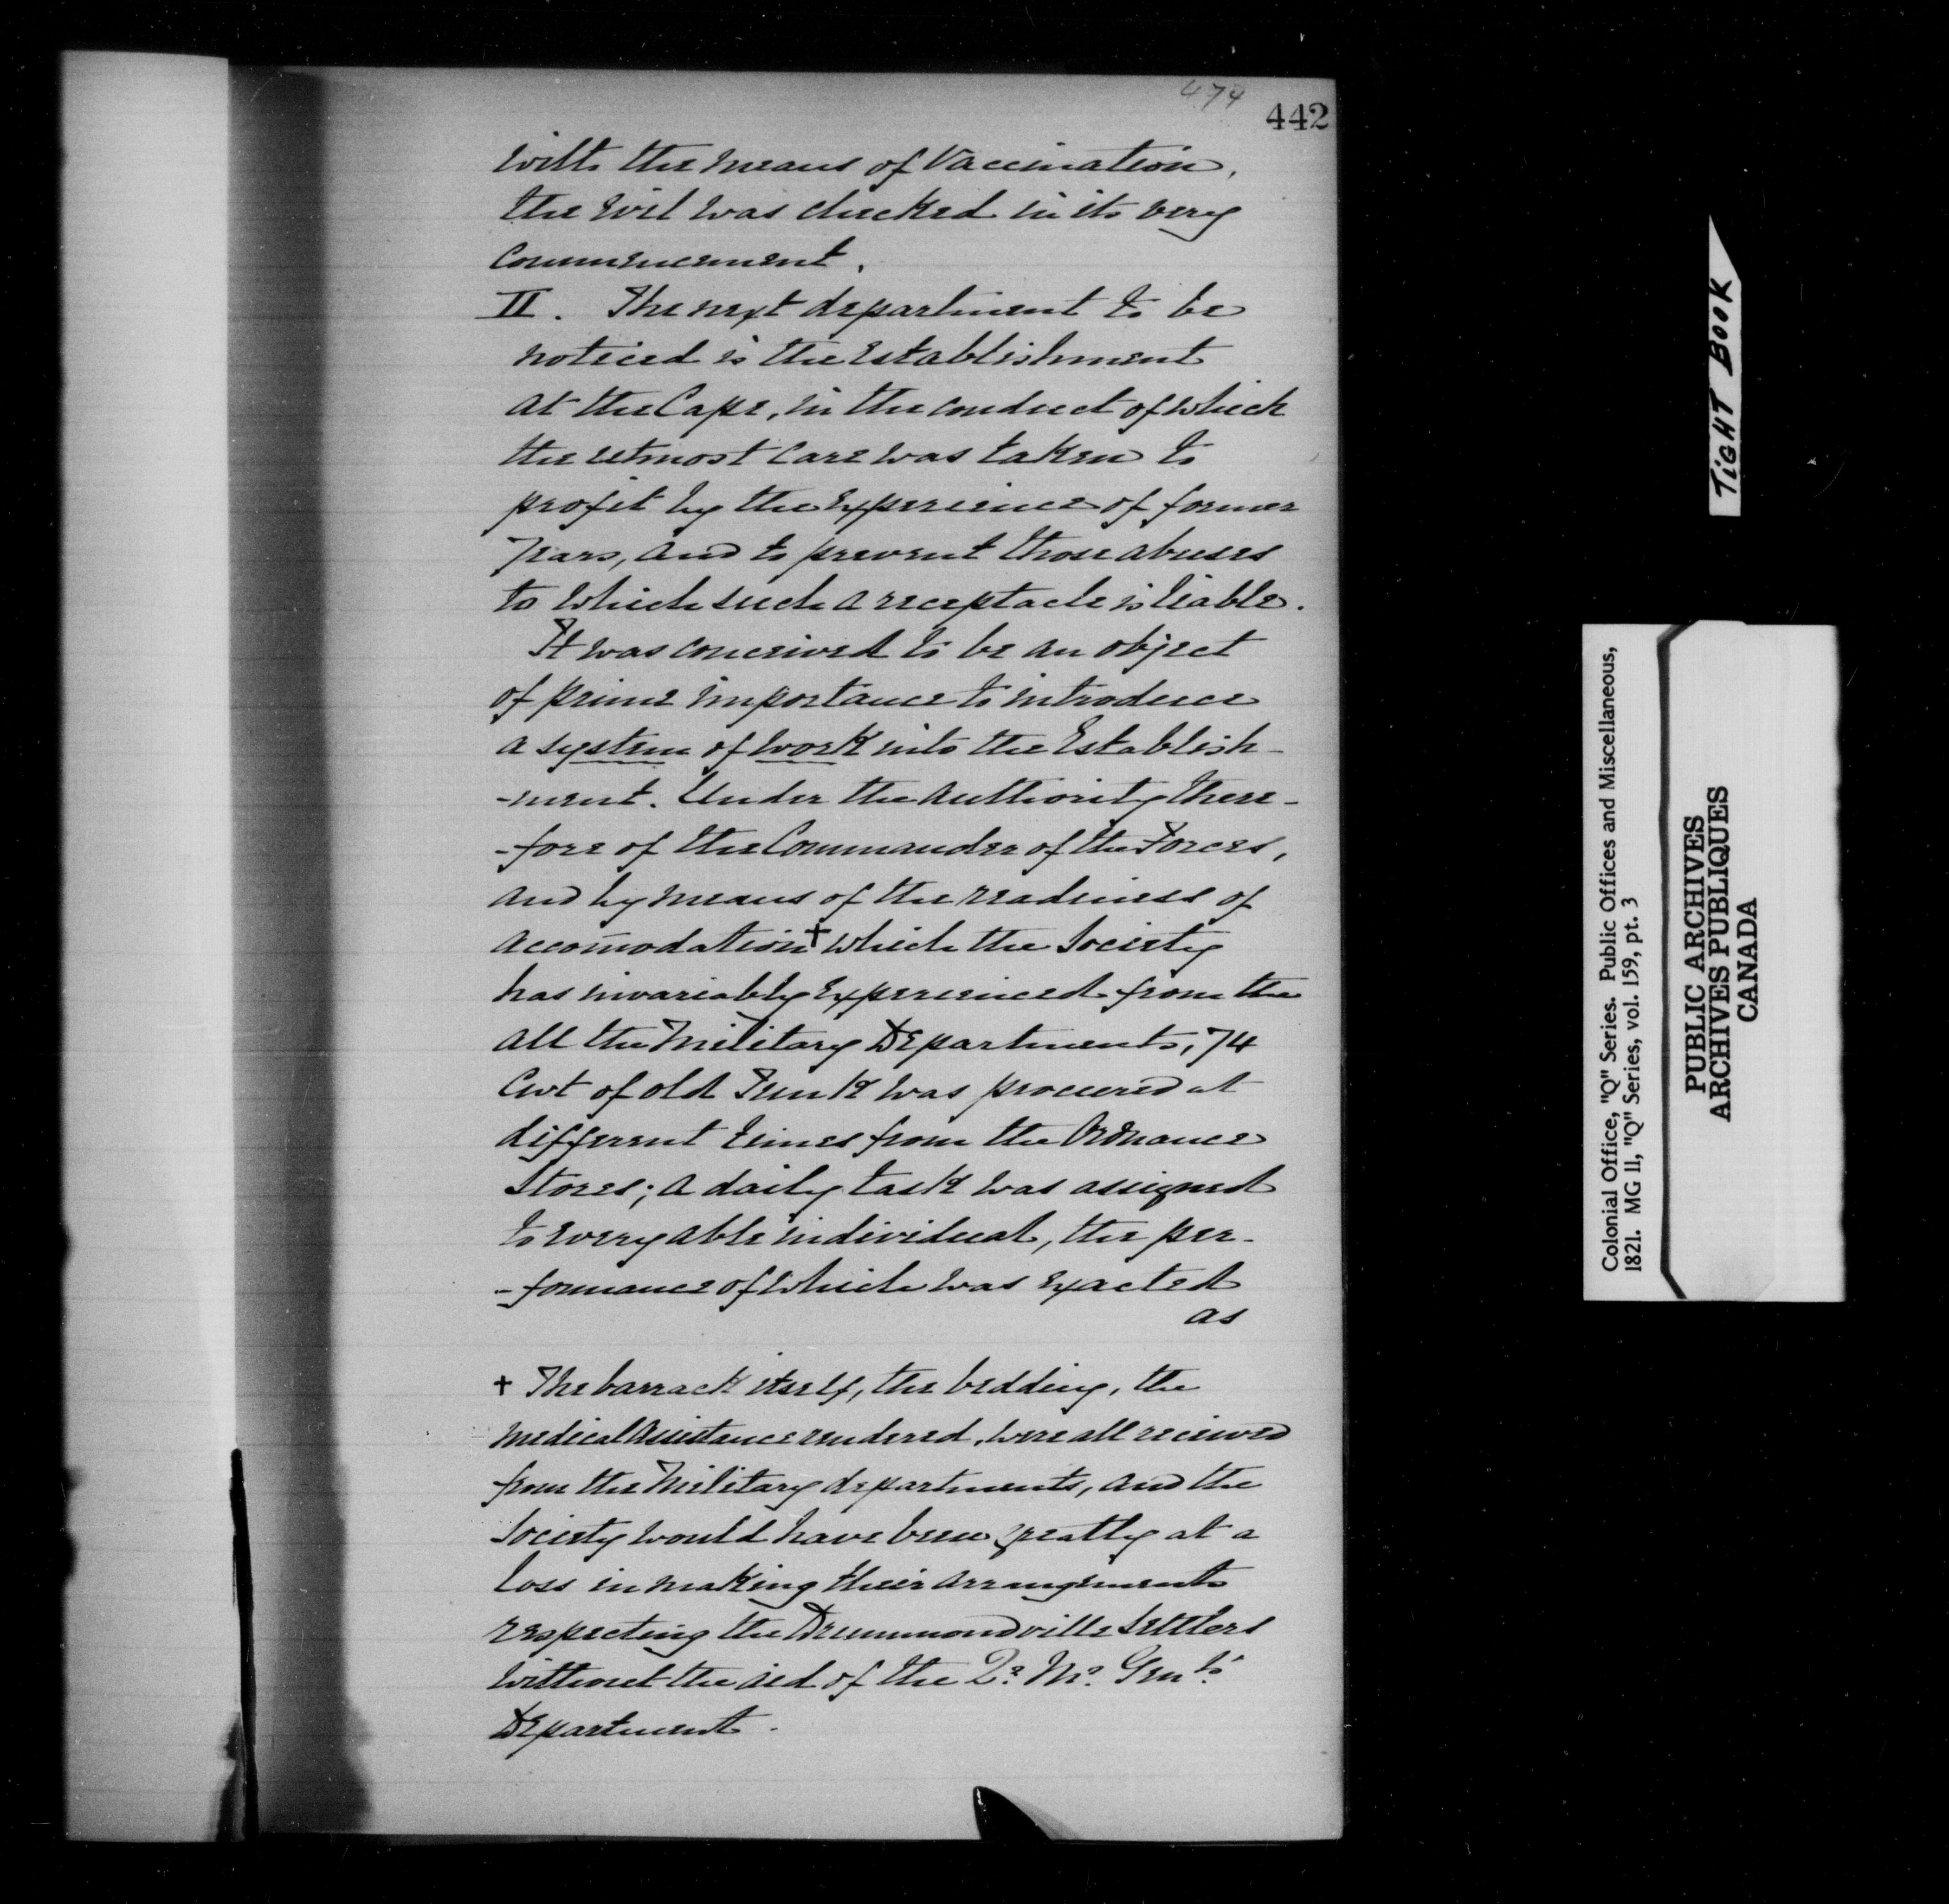 474
442
with the means of Vaccination,
the evil was checked in its very
commencement.
II. The next department to be
noticed is the Establishment
at the Cape, in the conduct of which
the utmost care was taken to
profit by the experience of former
years, and to prevent those abuses
to which such a receptacle is liable.
It was conceived to be an object
of prime importance to introduce
a system of work into the Establish-
-ment. Under the authority there-
-fore of the Commander of the Forces,
and by means of the readiness of
accomodation + which the Society
has invariably experienced from the
all the Military Departments, 74
Cwt of old Junk was procured at
different times from the Ordnance
Stores; a daily task was assigned
to every able individual, the per-
-formance of which was exacted
as
+ The barrack itself, the bedding, the
medical assistance rendered, were all received
from the Military departments, and the
Society would have been greatly at a
loss in making their arrangements
respecting the Drummondville Settlers
without the aid of the Qr. Mr. Genls.
Department.
TiGHT BOOK
Colonial Office, "Q" Series. Public Offices and Miscellaneous,
1821. MG 11, "Q" Series, vol. 159, pt. 3
PUBLIC ARCHIVES
ARCHIVES PUBLIQUES
CANADA